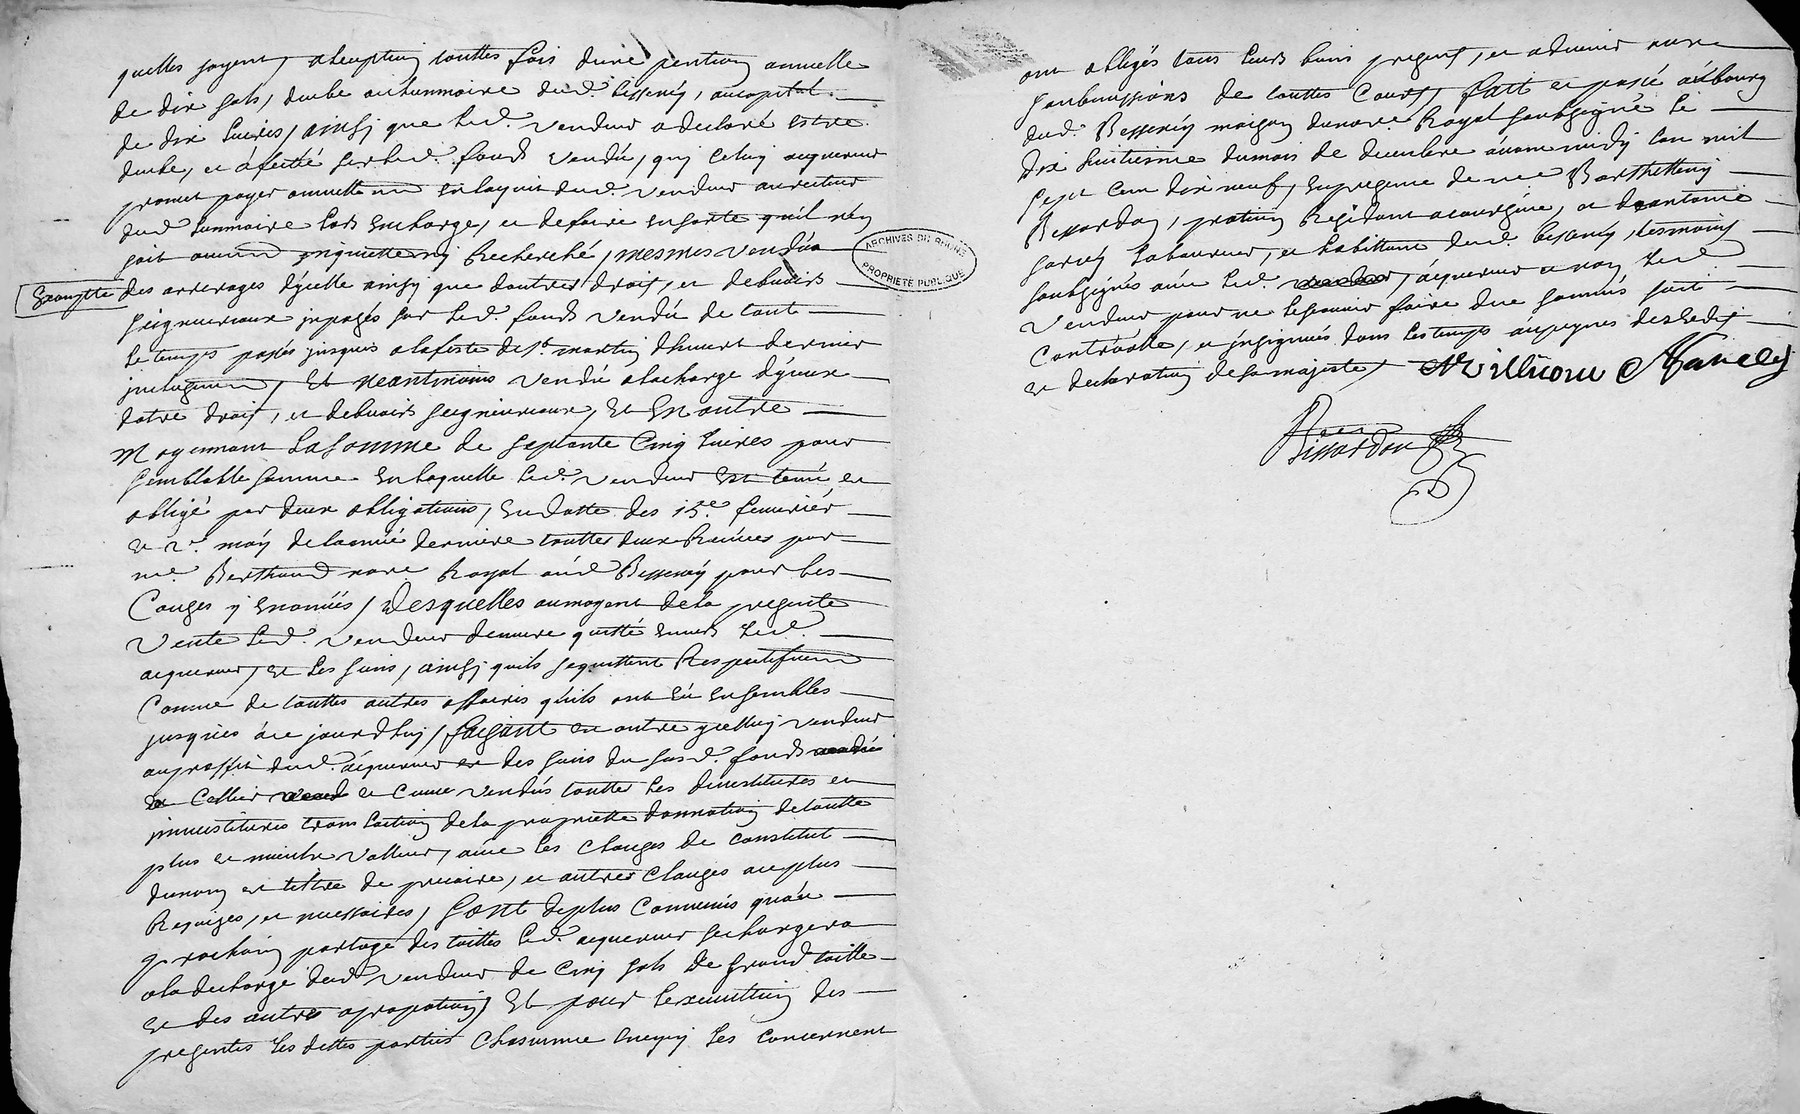 quelles soyent, a lexeption touttes fois dune pention annuelle
de dix sols, deube au lumnaire dud. Bessenay, au capital
de dix livres, ainsy que led. vendeur a declaré estre
deube, et afecté sur led. fond vendu, que celuy acquereur
promet payer annuellement en lacquit dud. vendeur au recteur
dud. lumnaire lors en charge, et de faire en sorte quil n'en
soit aucunement inquietté ny recherché, mesmes vendu
Exampte des arrerages d'ycelle ainsy que dautres droits, et debvoirs
seigneuriaux inposés sur led. fond vendu de tout
le temps passés jusques a la feste de st. martin dhivert dernier
inclusivement, Et neantmoins vendu a la charge d'yceux
datre droits, et debvoirs seigneuriaux, Et En outre
Moyennant La somme de septante Cinq livres pour
semblable somme en laquelle led. vendeur est tenu et
obligé par deux obligations, en datte des 15e. feuvrier
et 2e. may de lannée derniere touttes deux Receues par
me. Berthaud nore. Royal aud Bessenay pour les
Causes y enoncées, desquelles au moyent de la presente
vente led. vendeur demeure quitté envers led.
acquereur, et les siens, ainsy quils se quittent Respectivement
Comme de touttes autres affaires qu'ils ont eu ensembles
jusques a ce jourdhuy, faisant en outre yceluy vendeur
au proffit dud. acquereur et des siens du susd. fond
Cellier et Cuve vendus touttes les devestitures et
investitures translation de la proprietté donnation de toutte
plus et moindre valleur, avec les Clauses de constitut
du nom et tiltre de precaire, et autres Clauses au plus
Requises, et necessaires, sont de plus Convenus qu'au
prochain partage des tailles led. acquereur se chargera
a la decharge dud. vendeur de Cinq sols de grand taille
et des autres a propotion, Et pour lexecuttion des
presentes les dittes parties Chascunne en ce quy les concernent
ont obligés tous leurs biens presens, et advenir avec
soubmissions de touttes Cours, fait et passé au bourg
dud. Bessenay maison dunore. Royal soubsigné le
dix huitiesme dumois de decembre avant midy lan mil
sept cent dix neuf, en presence de me Barthellemy
Bissardon, pratitien Residant a courzieu, et dantoine
Laboureur, et habittant dud. bessenay, tesmoins
soubsignés avec led. acquereur et non led.
vendeur pour ne le scavoir faire de ce sommés soit
Controollé, et insignués dans les temps aux peynes des Edits
et declaration de sa majesté,
Bissardon
ARCHIVES DU RHONE
PROPRIETE PUBLIQUE